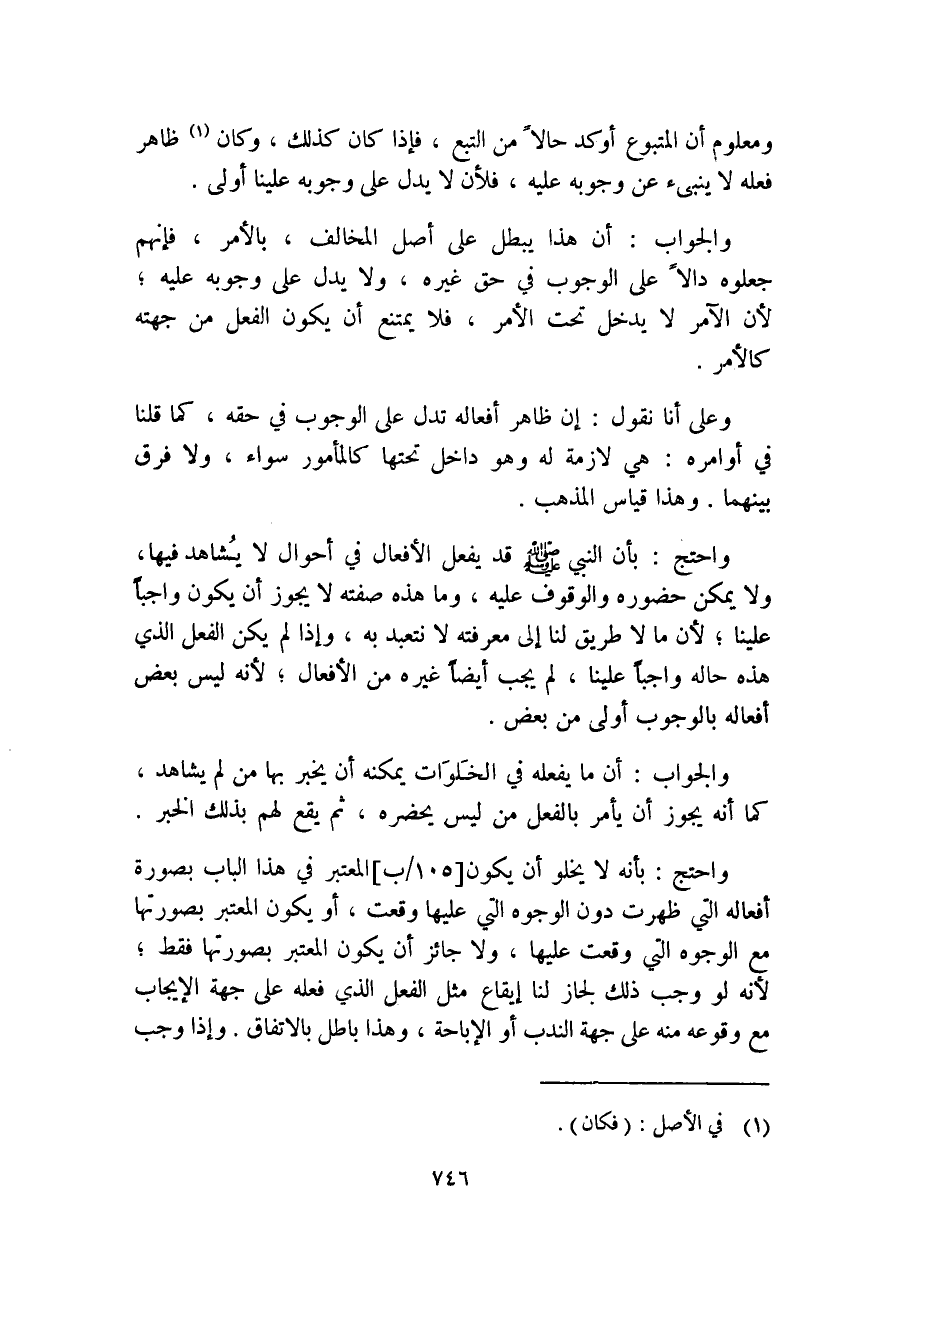 ومعلوم أن المتبوع أوكد حالاً من التبع ، فإذا كان كذلك ، وكان (١) ظاهر
فعله لا ينبىء عن وجوبه عليه ، فلأن لا يدل على وجوبه علينا أولى .
والجواب : أن هذا يبطل على أصل المخالف ، بالأمر ، فإنهم
جعلوه دالاً على الوجوب في حق غيره ، ولا يدل على وجوبه عليه ؛
لأن الآمر لا يدخل تحت الأمر ، فلا يمتنع أن يكون الفعل من جهته
كالأمر .
وعلى أنا نقول : إن ظاهر أفعاله تدل على الوجوب في حقه ، كما قلنا
في أوامره : هي لازمة له وهو داخل تحتها كالمأمور سواء ، ولا فرق
بينهما . وهذا قياس المذهب .
واحتج : بأن النبي ﷺ قد يفعل الأفعال في أحوال لا يُشاهد فيها،
ولا يمكن حضوره والوقوف عليه ، وما هذه صفته لا يجوز أن يكون واجباً
علينا ؛ لأن ما لا طريق لنا إلى معرفته لا نتعبد به ، وإذا لم يكن الفعل الذي
هذه حاله واجباً علينا ، لم يجب أيضاً غيره من الأفعال ؛ لأنه ليس بعض
أفعاله بالوجوب أولى من بعض .
والجواب : أن ما يفعله في الخَلوَات يمكنه أن يخبر بها من لم يشاهد ،
كما أنه يجوز أن يأمر بالفعل من ليس يحضره ، ثم يقع لهم بذلك الخبر .
واحتج : بأنه لا يخلو أن يكون[١٠٥/ب]المعتبر في هذا الباب بصورة
أفعاله التي ظهرت دون الوجوه التي عليها وقعت ، أو يكون المعتبر بصورتها
مع الوجوه التي وقعت عليها ، ولا جائز أن يكون المعتبر بصورتها فقط ؛
لأنه لو وجب ذلك لجاز لنا إيقاع مثل الفعل الذي فعله على جهة الإيجاب
مع وقوعه منه على جهة الندب أو الإباحة ، وهذا باطل بالاتفاق . وإذا وجب
(١) في الأصل : (فكان) .
٧٤٦